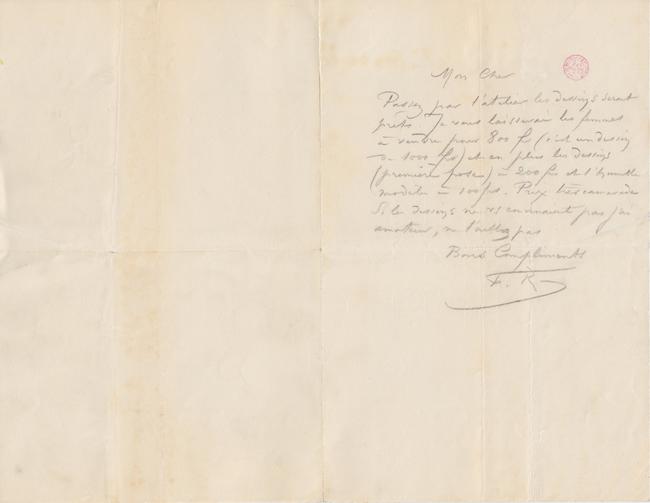 Mon Cher
Passez par l'atelier les dessins seront
prêts. Je vous laisserai les femmes
à vendre pour 800 fr (c'est un dessin
de 1000 frs) et en plus les dessins
(première pose) à 200 frs et l'humble
modèle à 100 frs. Prix très camarade
Si le dessins ne convenaient pas j'ai
amateur, ne l'oubliez pas
Bons Compliments
F. R.